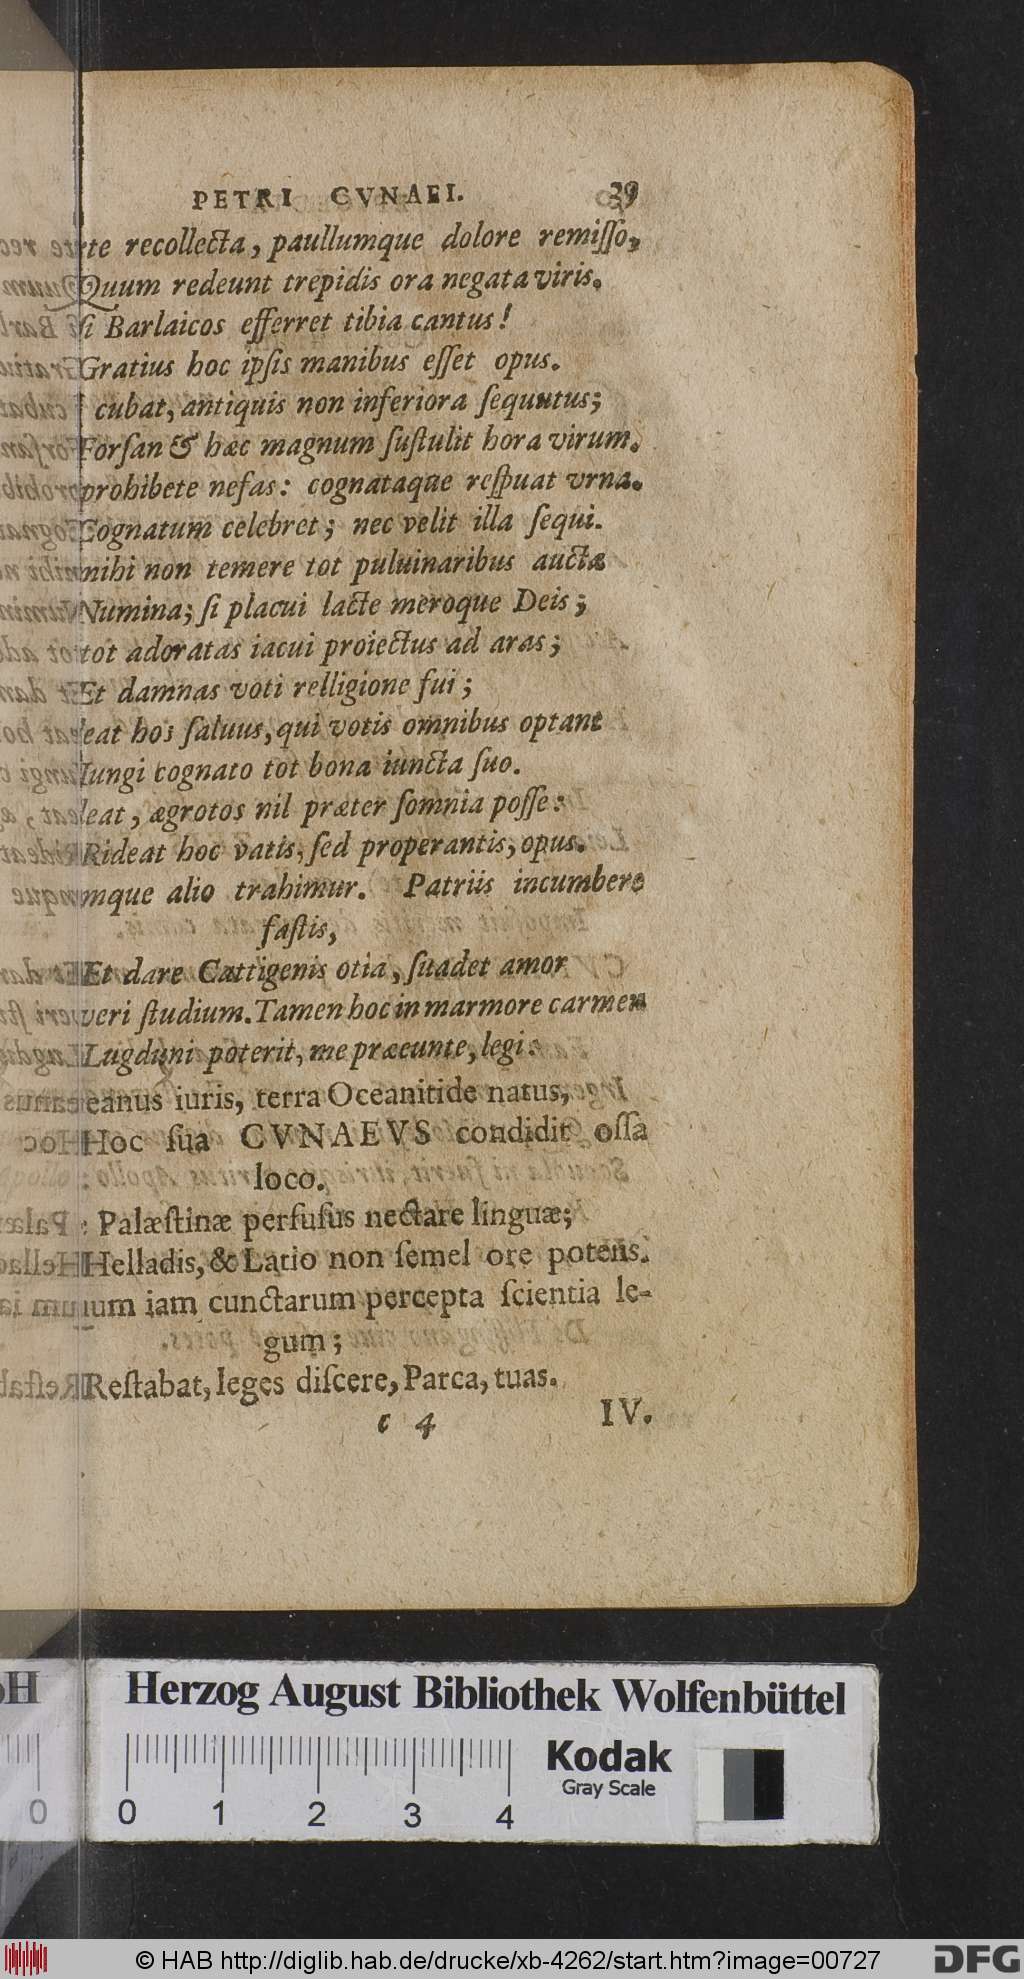 PETRI CVNAEI. 39
te recollecta, paullumque dolore remiſſo,
Quum redeunt trepidis ora negata viris.
ſi Barlaicos efferret tibia cantus!
Gratius hoc ipſis manibus eſſet opus.
cubat, antiquis non inferiora ſequutus;
Forſan & hæc magnum ſuſtulit hora virum.
prohibete nefas: cognataque reſpuat vrna.
Cognatum celebret; nec velit illa ſequi.
mihi non temere tot puluinaribus auctæ
Numina; ſi placui lacte meroque Deis;
tot adoratas iacui proiectus ad aras;
Et damnas voti relligione fui;
eat hos ſaluus, qui votis omnibus optant
Iungi cognato tot bona iuncta ſuo.
leat, ægrotos nil præter ſomnia poſſe:
Rideat hoc vatis, ſed properantis, opus.
mque alio trahimur. Patriis incumbere
faſtis,
Et dare Cattigenis otia, ſuadet amor
veri ſtudium. Tamen hoc in marmore carmen
Lugduni poterit, me præeunte, legi:
eanus iuris, terra Oceanitide natus,
Hoc ſua CVNAEVS condidit oſſa
loco.
: Palæſtinæ perfuſus nectare linguæ;
Helladis, & Latio non ſemel ore potens.
um iam cunctarum percepta ſcientia le-
gum;
Reſtabat, leges diſcere, Parca, tuas.
c 4 IV.
Herzog August Bibliothek Wolfenbüttel
Kodak
Gray Scale
0 0 1 2 3 4
© HAB http://diglib.hab.de/drucke/xb-4262/start.htm?image=00727
DFG